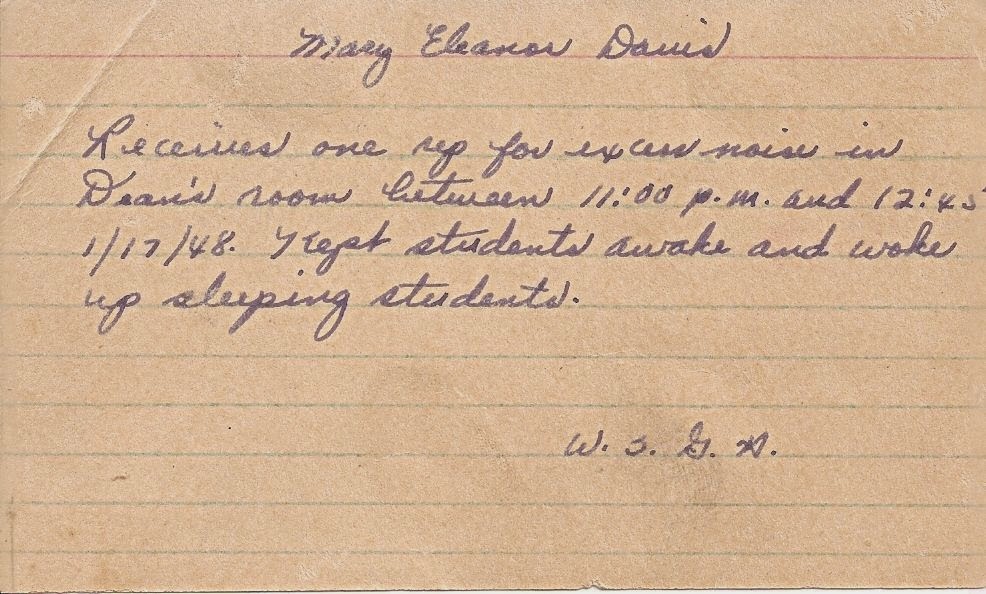 Mary Eleanor Davis
Receives one rep for excess noise in
Dean's room between 11:00 p.m. and 12:45
1/17/48. Kept students awake and woke
up sleeping students.
W. S. G. A.